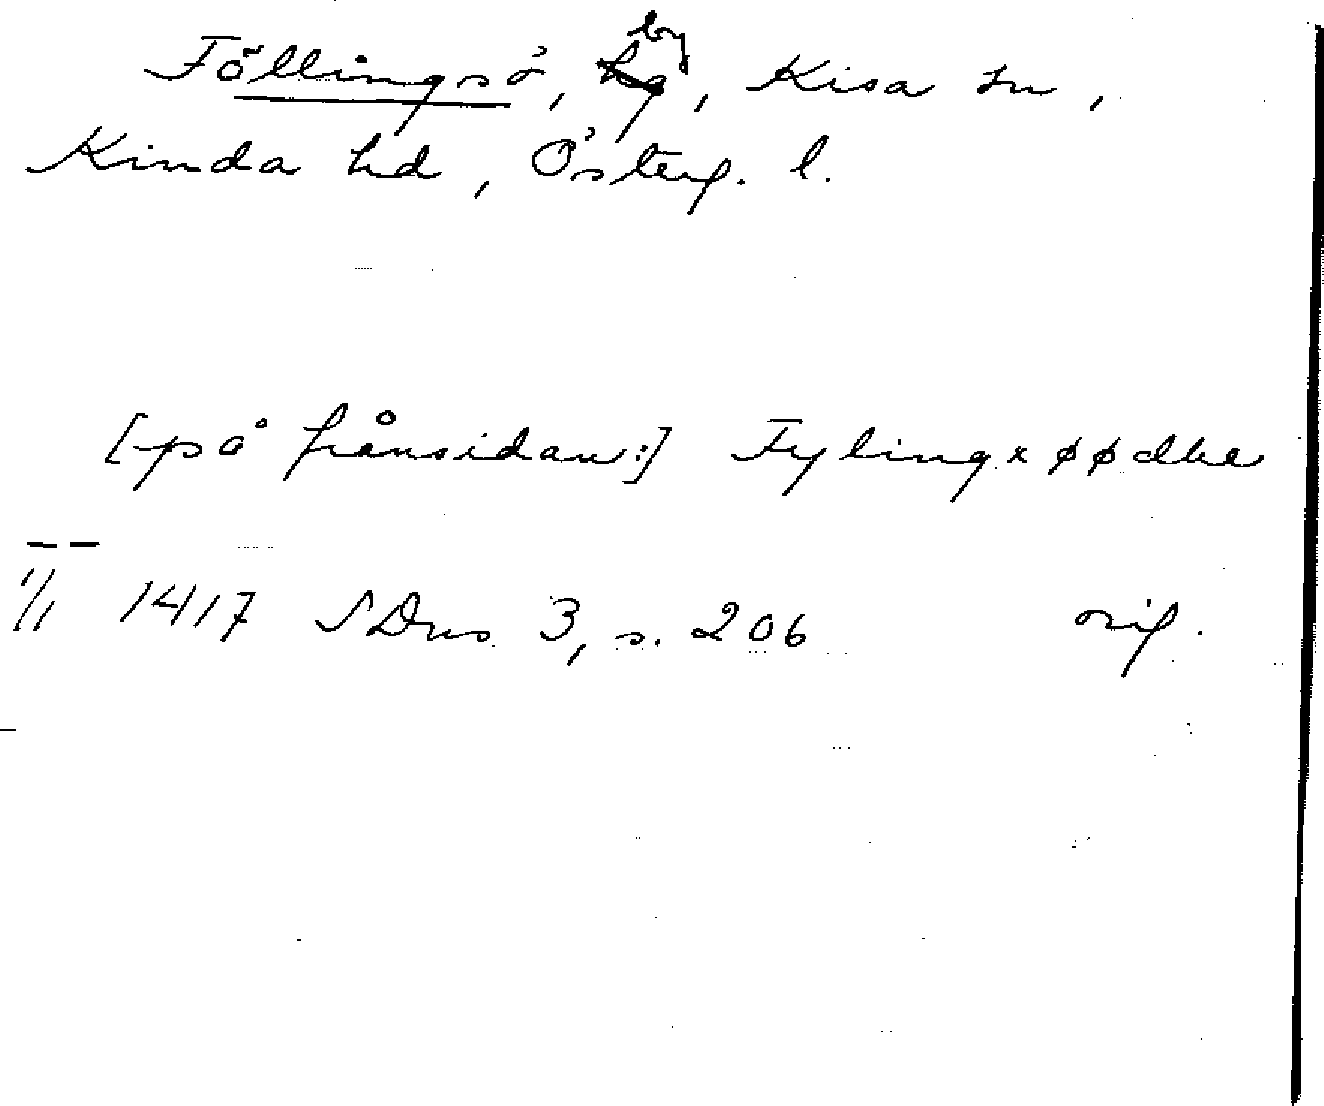 Föllingsö, by, Kisa sn,
Kinda hd, Österg. l.
[på frånsidan:] Fylingxøødhe
1/1 1417 SDns 3, s. 206 orig.